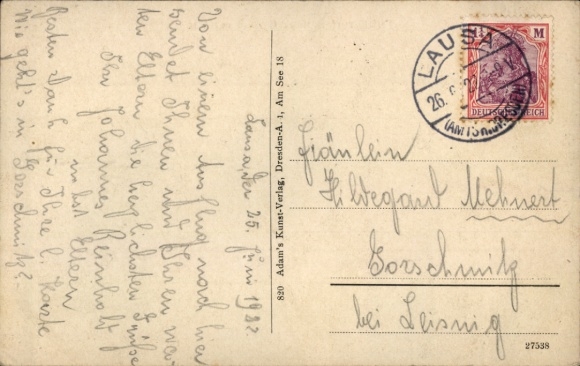 Lausa den 25. Juni 1922
Von einem Ausflug nach hier
sendet Ihnen und Ihren wer-
ten Eltern die herzlichsten Grüße
Ihr Johannes Reinholz
nebst Eltern
Besten Dank für Ihre l. Karte
Wie geht's in Gorschmitz?
820 Adam's Kunst-Verlag, Dresden-A. 1, Am See 18
M
DEUTSCHES REICH
LAUSA
26. 6. 22
(AMTSH. DRESDEN)
Fräulein
Hildegard Mehnert
Gorschmitz
bei Leisnig
27538